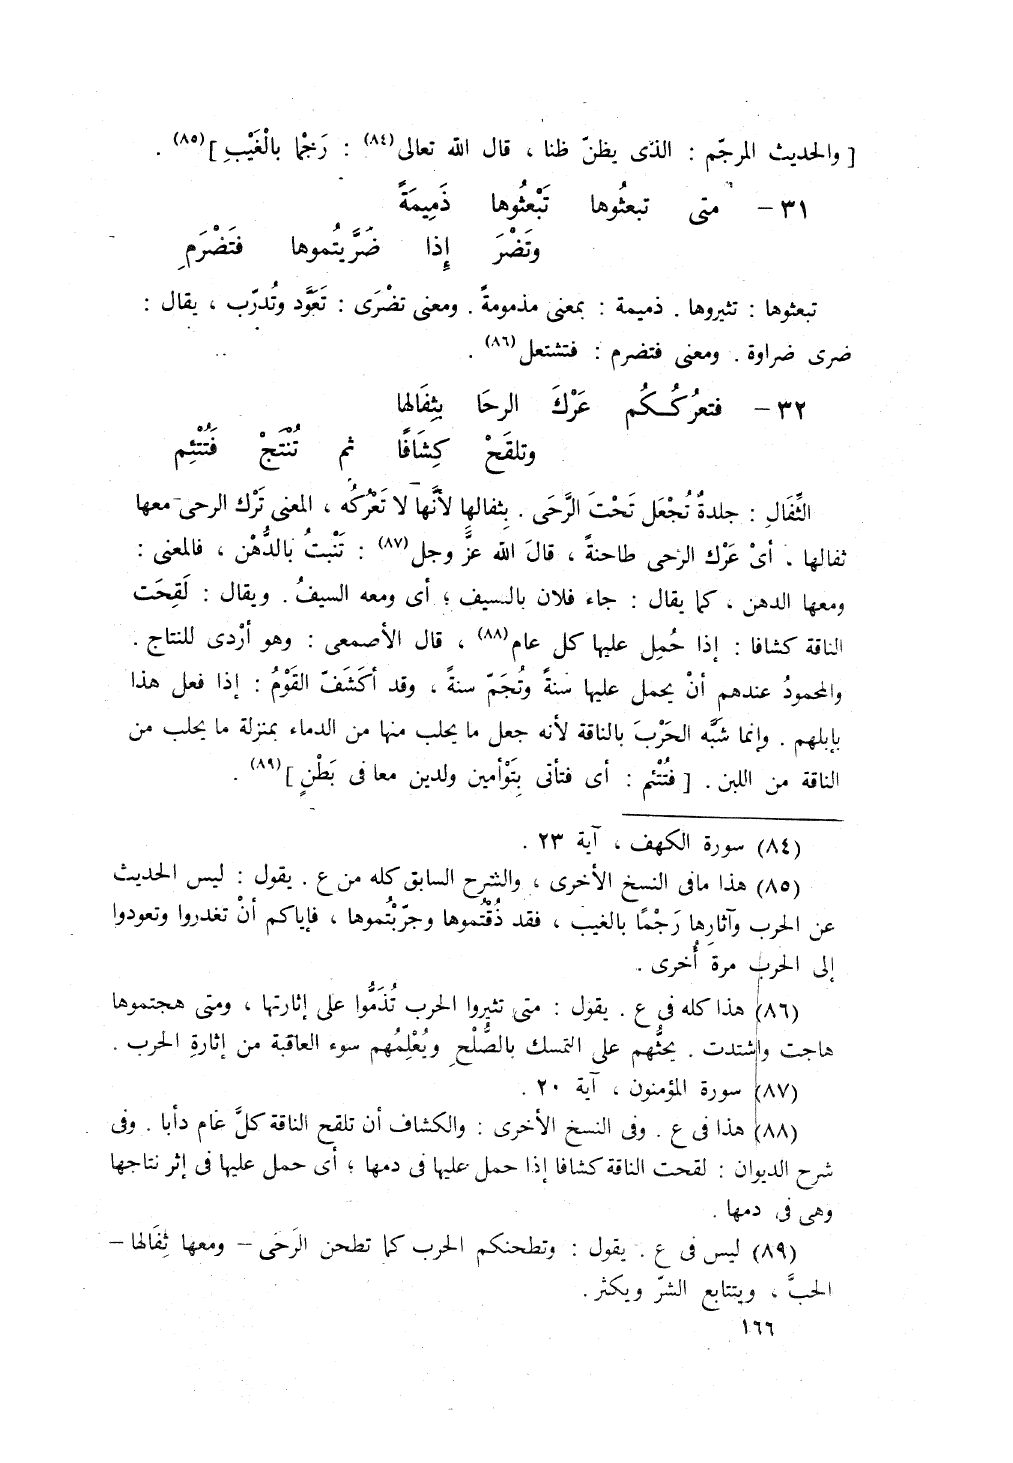 [ والحديث المرجّم : الذى يظنّ ظنا ، قال الله تعالى(٨٤) : رَجْمًا بالْغَيْبِ ](٨٥) .
٣١ – متى تبعثُوها تَبْعثُوها ذَمِيمَةً
وتَضْرَ إِذا ضَرَّيتُموها فتَضْرَمِ
تبعثوها : تثيروها . ذميمة : بمعنى مذمومةً . ومعنى تضْرَى : تَعَوَّد وتُدرّب ، يقال :
ضرى ضراوة . ومعنى فتضرم : فتشتعل(٨٦) .
٣٢ – فتعرُكـكُم عَرْكَ الرحَا بِثِفَالِها
وتلقَحْ كِشَافًا ثم تُنْتَجْ فَتُتْئِم
الثِّفَالِ : جلدةٌ تُجْعَل تَحْتَ الرَّحَى . بِثفالها لأنَّها لا تَعْرُكُه ، المعنى تَرْك الرحى معها
ثفالها . أىْ عَرْك الرحى طاحنةً ، قالَ الله عزَّ وجل(٨٧) : تَنْبتُ بالدُّهْن ، فالمعنى :
ومعها الدهن ، كما يقال : جاء فلان بالسيف ؛ أى ومعه السيفُ . ويقال : لَقِحَت
الناقة كشافا : إذا حُمِل عليها كل عام(٨٨) ، قال الأصمعى : وهو أرْدى للنتاج .
والمحمودُ عندهم أنْ يحمل عليها سَنةً وتُجَمّ سنةً ، وقد أكَشَفَ القَوْمُ : إذا فعل هذا
بإبلهم . وإنما شَبَّه الحَرْبَ بالناقة لأنه جعل ما يحلب منها من الدماء بمنزلة ما يحلب من
الناقة من اللبن . [ فتُتْئم : أى فتأتى بِتَوْأمين ولدين معا فى بَطْنٍ ](٨٩) .
(٨٤) سورة الكهف ، آية ٢٣ .
(٨٥) هذا مافى النسخ الأخرى ، والشرح السابق كله من ع . يقول : ليس الحديث
عن الحرب وآثارِها رَجْمًا بالغيب ، فقد ذُقْتُموها وجرّبْتُموها ، فإياكم أنْ تغدروا وتعودوا
إلى الحرب مرة أُخرى .
(٨٦) هذا كله فى ع . يقول : متى تثيروا الحرب تُذَمُّوا على إثارتها ، ومتى هجتموها
هاجت واشتدت . يحثُّهم على التمسك بالصُّلْحِ ويُعْلِمُهم سوء العاقبة من إثارةِ الحرب .
(٨٧) سورة المؤمنون ، آية ٢٠ .
(٨٨) هذا فى ع . وفى النسخ الأخرى : والكشاف أن تلقح الناقة كلَّ عام دأبا . وفى
شرح الديوان : لقحت الناقة كشافا إذا حمل عليها فى دمها ؛ أى حمل عليها فى إثر نتاجها
وهى فى دمها .
(٨٩) ليس فى ع . يقول : وتطحنكم الحرب كما تطحن الرَحَى – ومعها ثِفَالها –
الحبَّ ، ويتتابع الشرّ ويكثر .
١٦٦